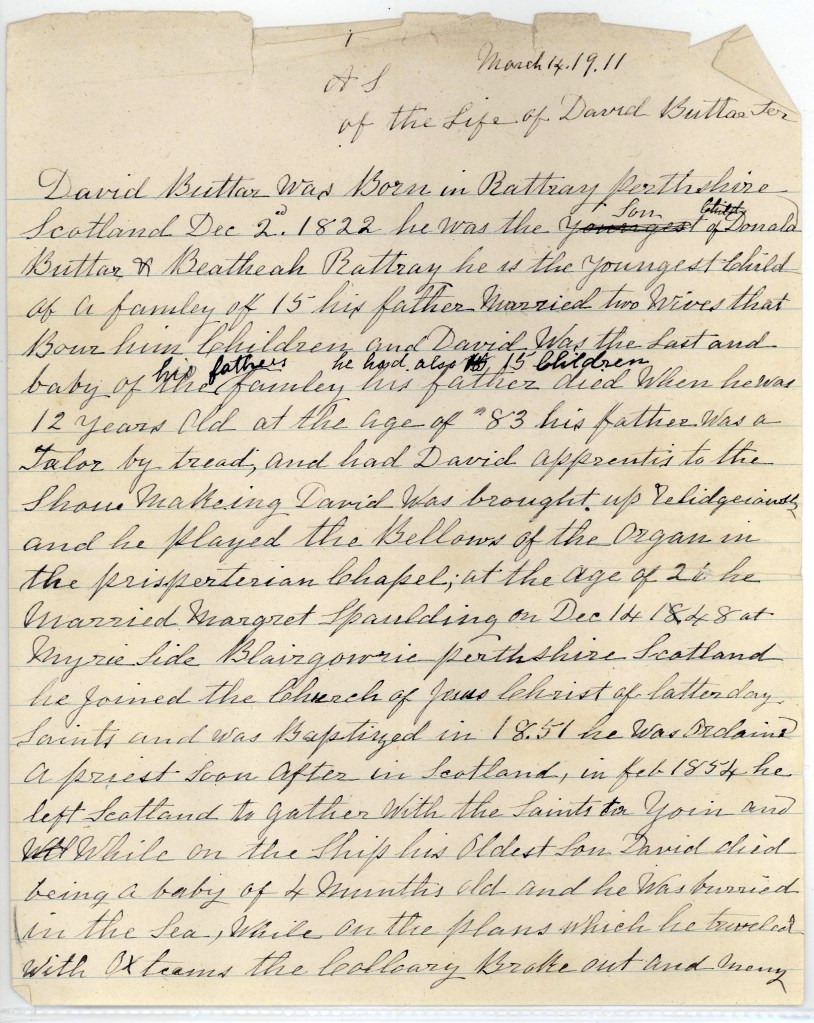 March 14. 19.11
A S
of the Life of David Buttar Ser
David Buttar Was Born in Rattray perthshire
Scotland Dec 2nd. 1822 he was the Youngest Son Child of Donald
Buttar & Beatheah Rattray he is the Youngest Child
of a famley off 15 his father Married two Wives that
Bour him Children and David Was the Last and
his fathers he had also 15 Children
baby of the famley his father died When he was
12 Years Old at the age of 83 his father Was a
Talor by tread, and had David apprentis to the
Shoue Makeing David Was brought up Relidgeiously
and he played the Bellows of the Organ in
the prisperterian Chapel; at the age of he
Married Margret Spaulding on Dec 14 1848 at
Myrie Side Blairgowrie perthshire Scotland
he Joined the Church of Jesus Christ of latter day
Saints and was Baptized in 1851 he Was Ordained
A priest Soon After in Scotland, in Feb 1854 he
left Scotland to gather With the Saints in Yoin and
While on the Ship his Oldest Son David died
being a baby of 4 Munths old and he Was burried
in the Sea, While on the plans which he traveled
With Ox teams the Colloary Broke out and meny